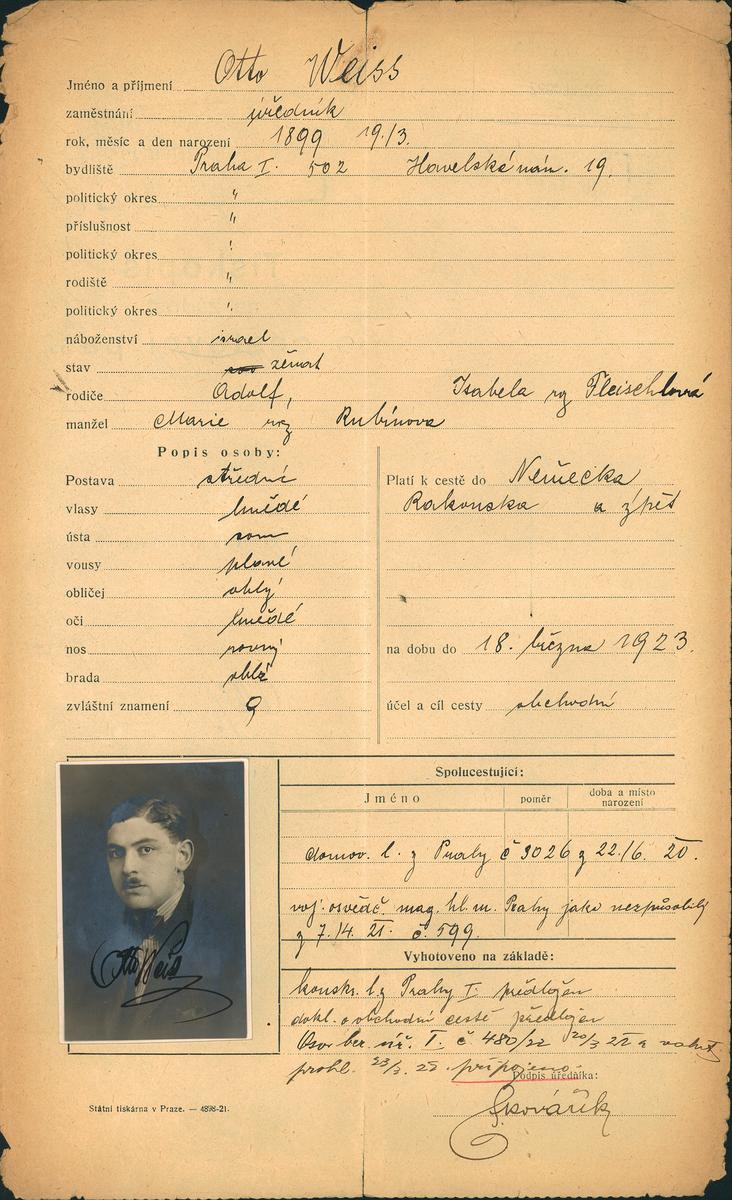 Jméno a příjmení Otto Weiss
zaměstnání úředník
rok, měsíc a den narození 1899 19./3.
bydliště Praha I. 502 Havelské nám. 19.
politický okres "
příslušnost "
politický okres "
rodiště "
politický okres "
náboženství israel
stav ženat
rodiče Adolf, Isabela roz Fleischlová
manžel Marie roz Rubínova
Popis osoby:
Postava střední
vlasy hnědé
ústa
vousy plavé
obličej oblý
oči hnědé
nos rovný
brada oblá
zvláštní znamení
Platí k cestě do Německa
Rakouska a zpět
na dobu do 18. března 1923.
účel a cíl cesty obchodní
Otto Weis
Spolucestující:
Jméno poměr doba a místo narození
domov. l. z Prahy č 3026 z 22./6. 20.
voj. osvědč. mag. hl. m. Prahy jako nezpůsobilý
z 7./4. 21. č. 599.
Vyhotoveno na základě:
konskr. l. z Prahy I. předložen
dokl. o obchodní cestě předložen
Osv. ber. I. č. 480/22 20/3 22 a
prohl. 23/3. 22 připojeno.
Podpis úředníka:
Skovářík
Státní tiskárna v Praze. — 4898-21.